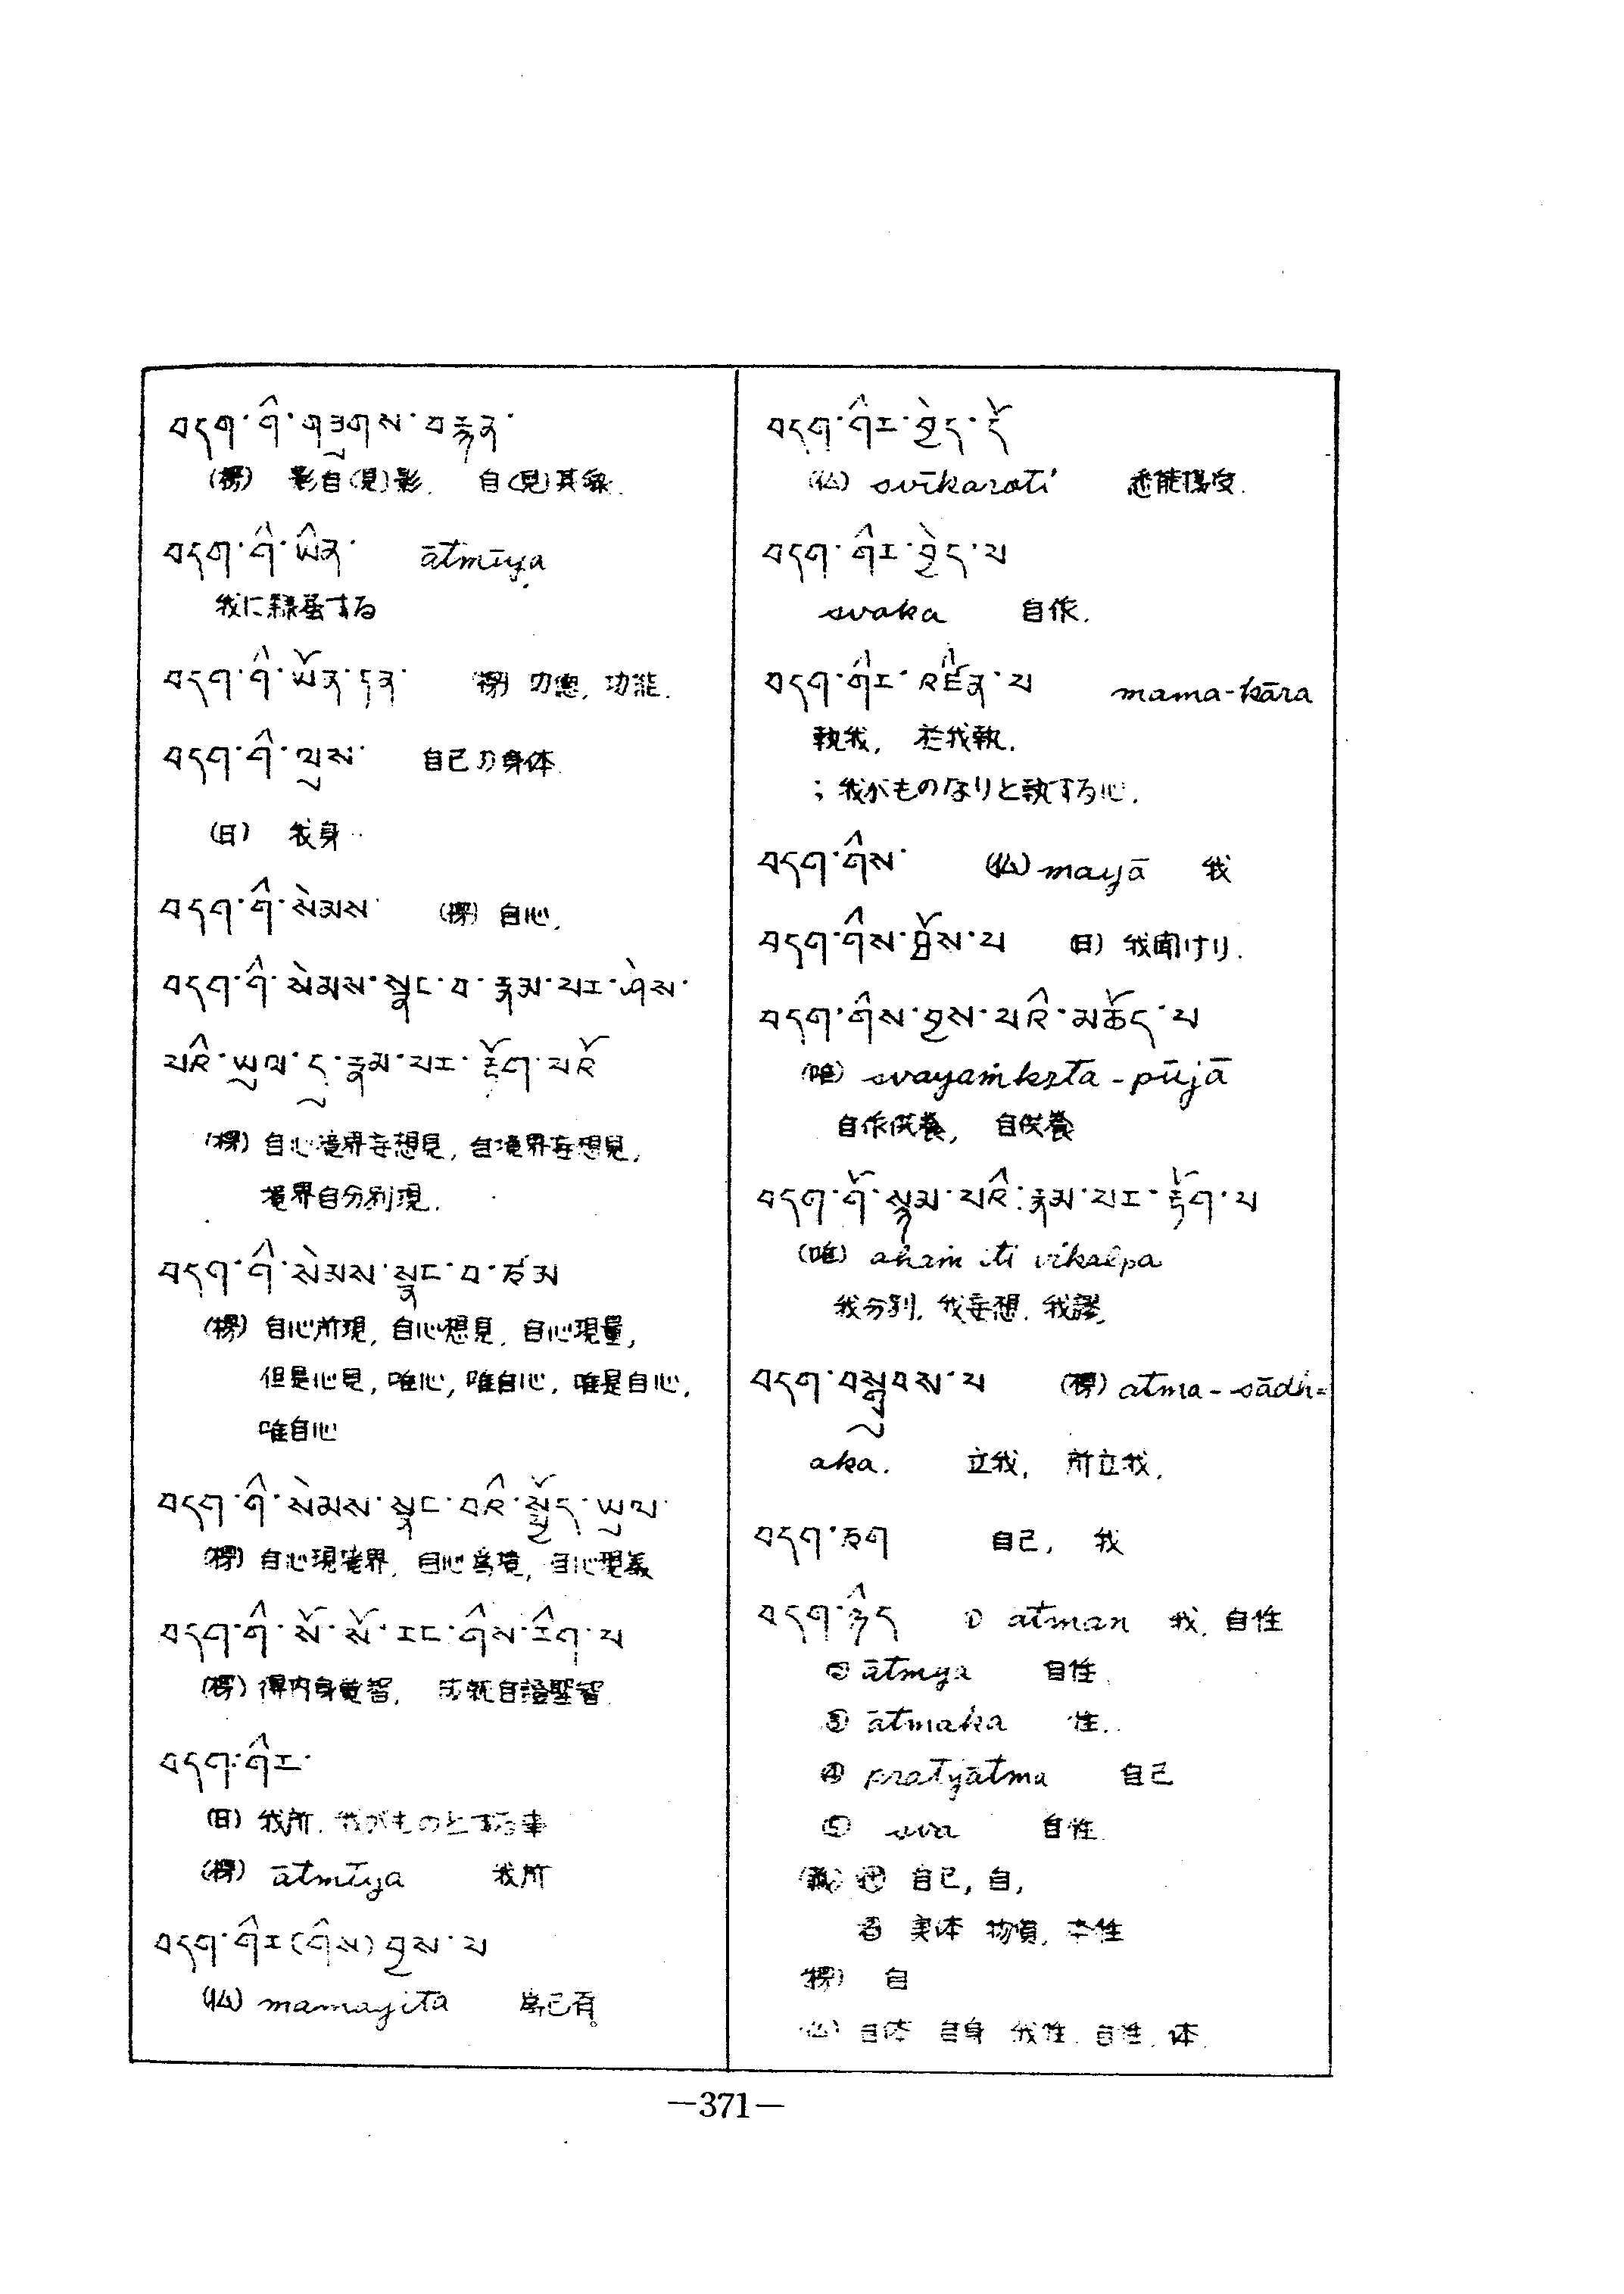 བདག་གི་གཟུགས་བརྙན་
(楞) 影自(見)影. 自(見)其像.
བདག་གི་ཡིན་ ātmīya
我に隷属する
བདག་གི་ཡོན་ཏན་ (楞) 功徳, 功能.
བདག་གི་ལུས་ 自己の身体.
(日) 我身
བདག་གི་སེམས་ (楞) 自心.
བདག་གི་སེམས་སྣང་བ་རྣམ་པར་ཤེས་
པའི་ཡུལ་དུ་རྣམ་པར་རྟོག་པའོ
(楞) 自心境界妄想見, 自境界妄想見,
境界自分別現.
བདག་གི་སེམས་སྣང་བ་ཙམ
(楞) 自心所現, 自心想見, 自心現量,
但是心見, 唯心, 唯自心, 唯是自心,
唯自心
བདག་གི་སེམས་སྣང་བའི་སྤྱོད་ཡུལ་
(楞) 自心現境界, 自心為境, 自心現義
བདག་གི་སོ་སོ་རང་གིས་རིག་པ
(楞) 得内身覚智, 成就自證聖智.
བདག་གིར་
(日) 我所. 我がものとする事
(楞) ātmīya 我所
བདག་གིར(གིས)བྱས་པ
(仏) mamayita 為己有。
བདག་གིར་བྱེད་དོ
(仏) svīkaroti 悉能傷皮.
བདག་གིར་བྱེད་པ
svaka 自作.
བདག་གིར་འཛིན་པ mama-kāra
執我, 於我執.
; 我がものなりと執する心.
བདག་གིས་ (仏) mayā 我
བདག་གིས་ཐོས་པ (日) 我聞けり.
བདག་གིས་བྱས་པའི་མཆོད་པ
(唯) svayaṁkṛta-pūjā
自作供養, 自供養
བདག་གོ་སྙམ་པའི་རྣམ་པར་རྟོག་པ
(唯) ahaṁ iti vikalpa
我分別. 我妄想. 我謬.
བདག་བསྒྲུབས་པ (楞) ātma-sādh=
aka. 立我, 所立我.
བདག་ཅག 自己, 我
བདག་ཉིད ① ātman 我, 自性
② ātmya 自性
③ ātmaka 性.
④ pratyātma 自己
⑤ sva 自性.
(蔵) 自己, 自,
実体 物質, 本性
(楞) 自
(仏) 自体 自身 我性. 自性. 体.
—371—